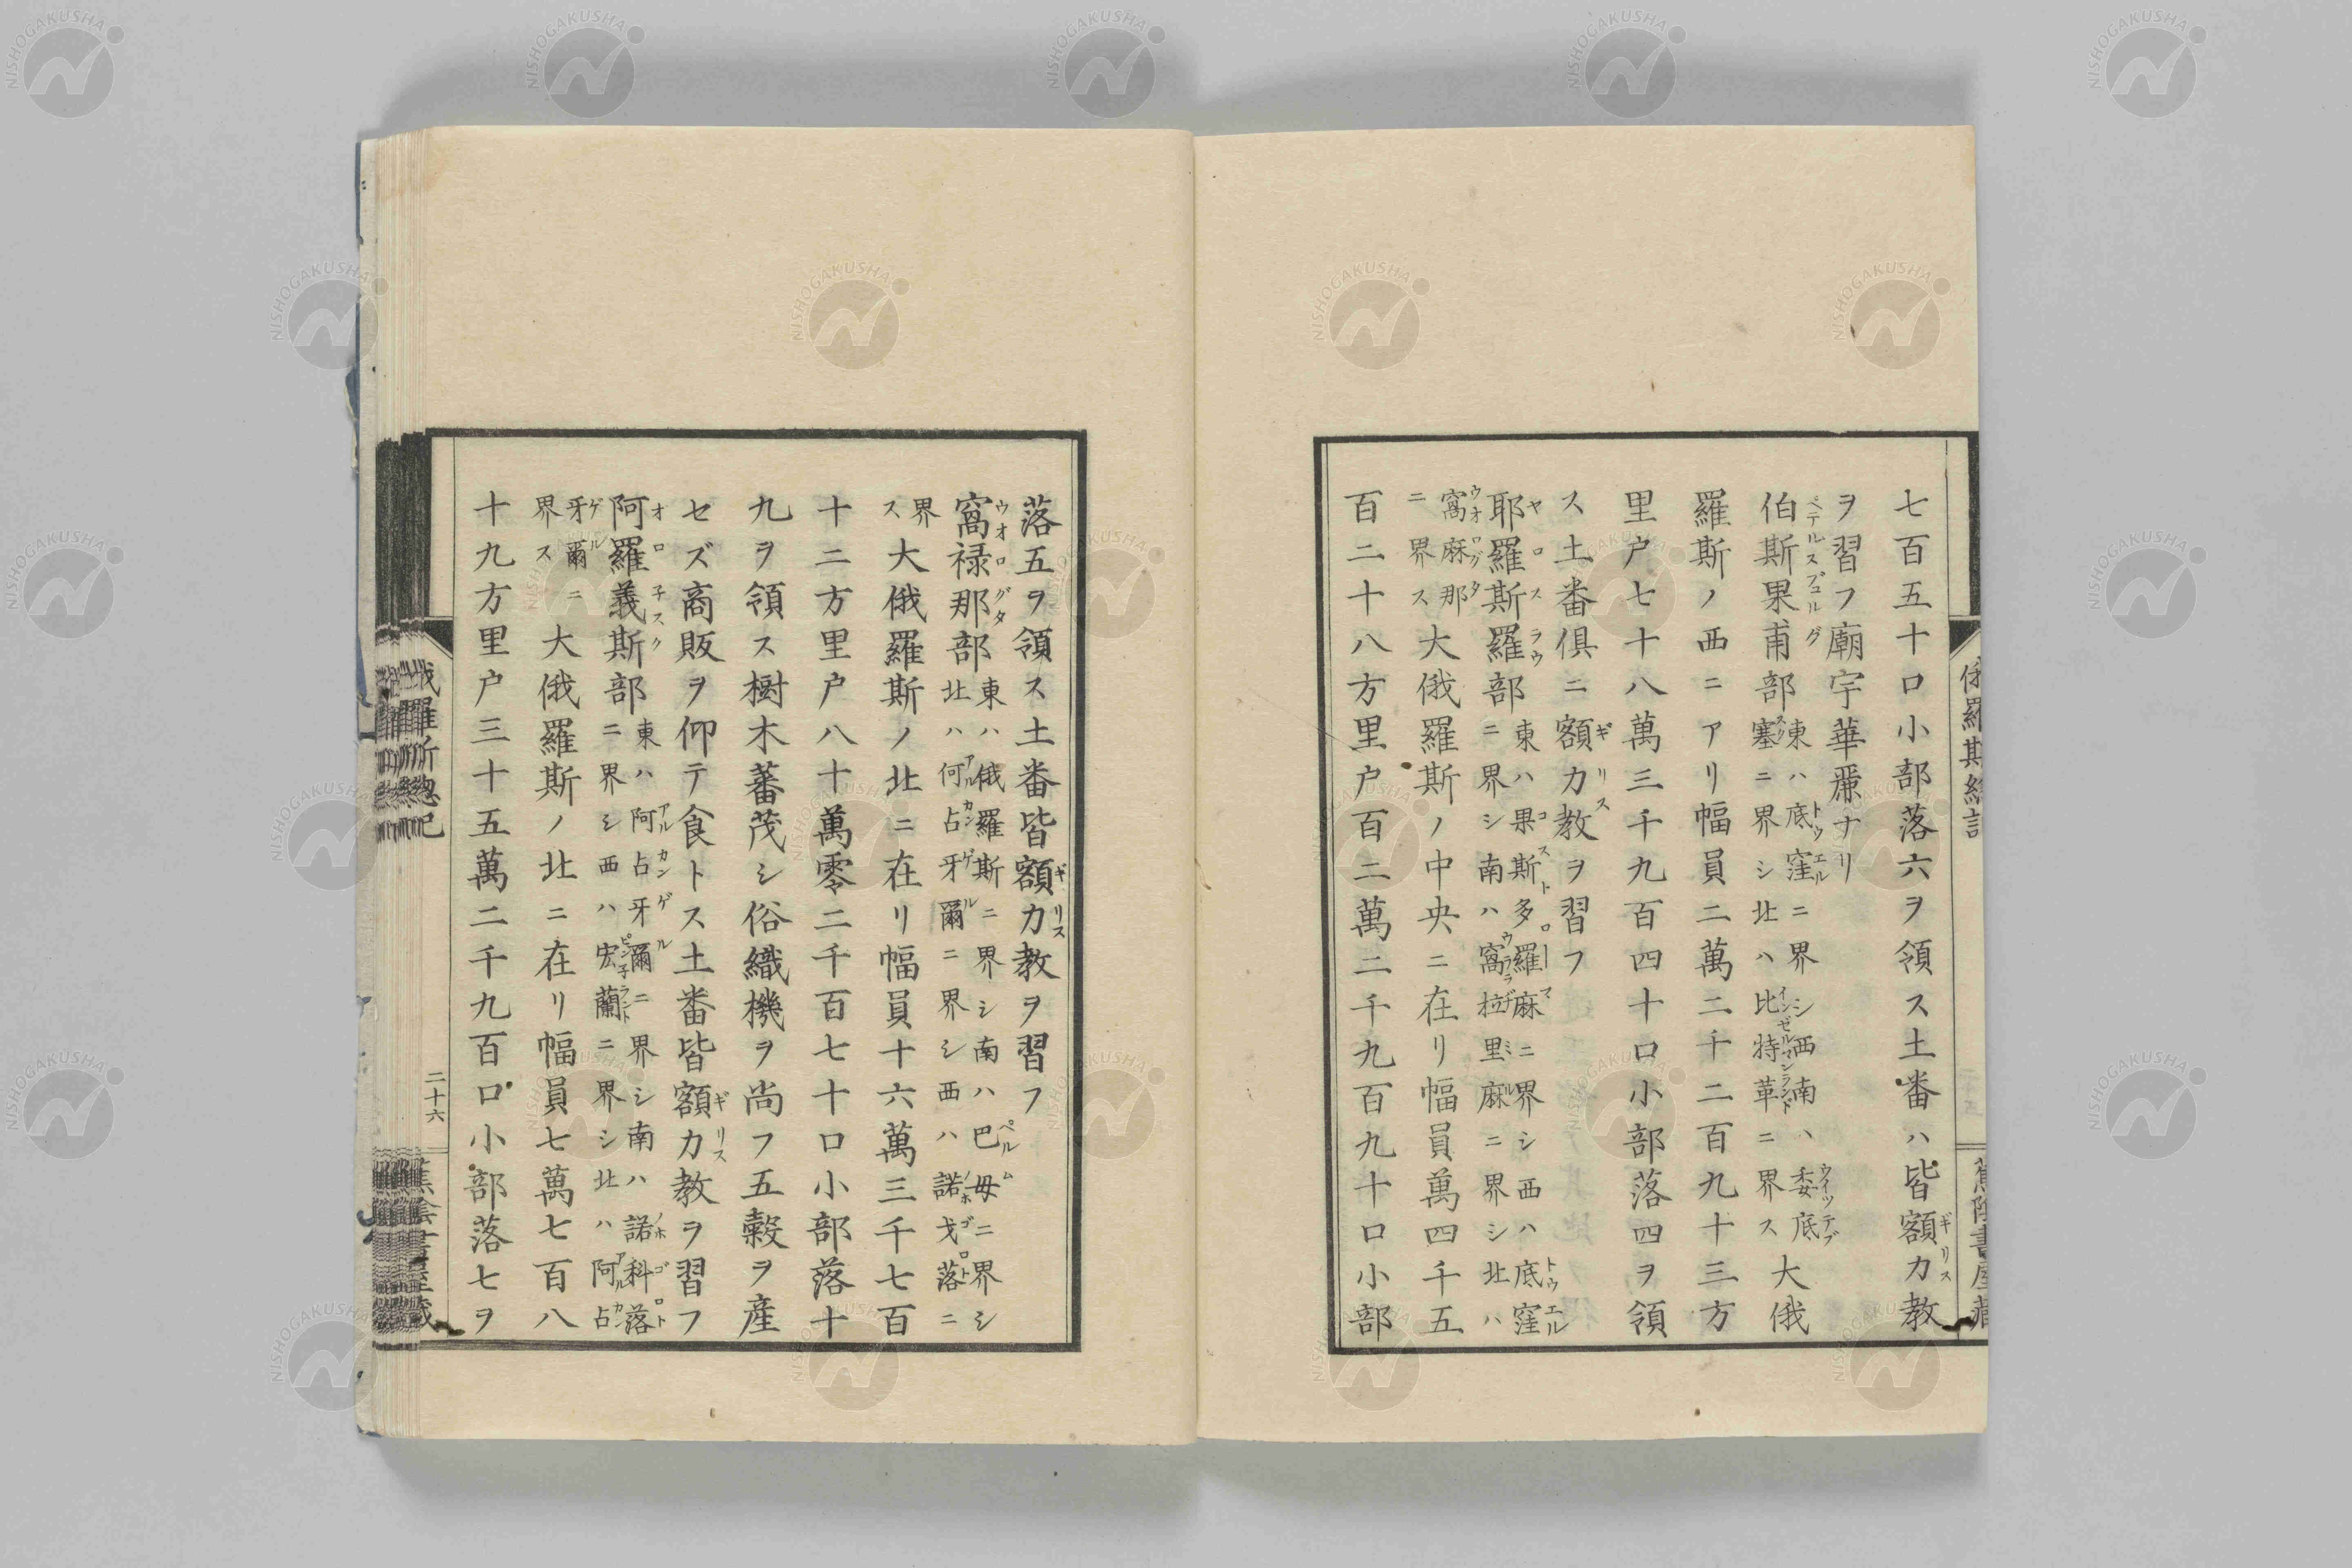 七百五十口小部落六ヲ領ス土番ハ皆額力教
ヲ習フ廟宇華麗ナリ
伯斯果甫部東ハ底窪ニ界シ西南ハ委底
塞ニ界シ北ハ比特革ニ界ス大俄
羅斯ノ西ニアリ幅員二萬二千二百九十三方
里户七十八萬三千九百四十口小部落四ヲ領
ス土番俱ニ額力教ヲ習フ
耶羅斯羅部東ハ果斯多羅麻ニ界シ西ハ底窪
ニ界シ南ハ窩拉里麻ニ界シ北ハ
窩麻那
ニ界ス大俄羅斯ノ中央ニ在リ幅員萬四千五
百二十八方里户百二萬二千九百九十口小部
落五ヲ領ス土番皆額力教ヲ習フ
窩禄那部東ハ俄羅斯ニ界シ南ハ巴毋ニ界シ
北ハ何占牙爾ニ界シ西ハ諾戈落ニ
界
ス大俄羅斯ノ北ニ在リ幅員十六萬三千七百
十二方里户八十萬零二千百七十口小部落十
九ヲ領ス樹木蕃茂シ俗織機ヲ尚フ五穀ヲ産
セズ商販ヲ仰テ食トス土番皆額力教ヲ習フ
阿羅義斯部東ハ阿占牙爾ニ界シ南ハ諾科落
ニ界シ西ハ宏蘭ニ界シ北ハ阿占
牙爾ニ
界ス大俄羅斯ノ北ニ在リ幅員七萬七百八
十九方里户三十五萬二千九百口小部落七ヲ
俄羅斯總記
二十六
蕉陰書屋藏